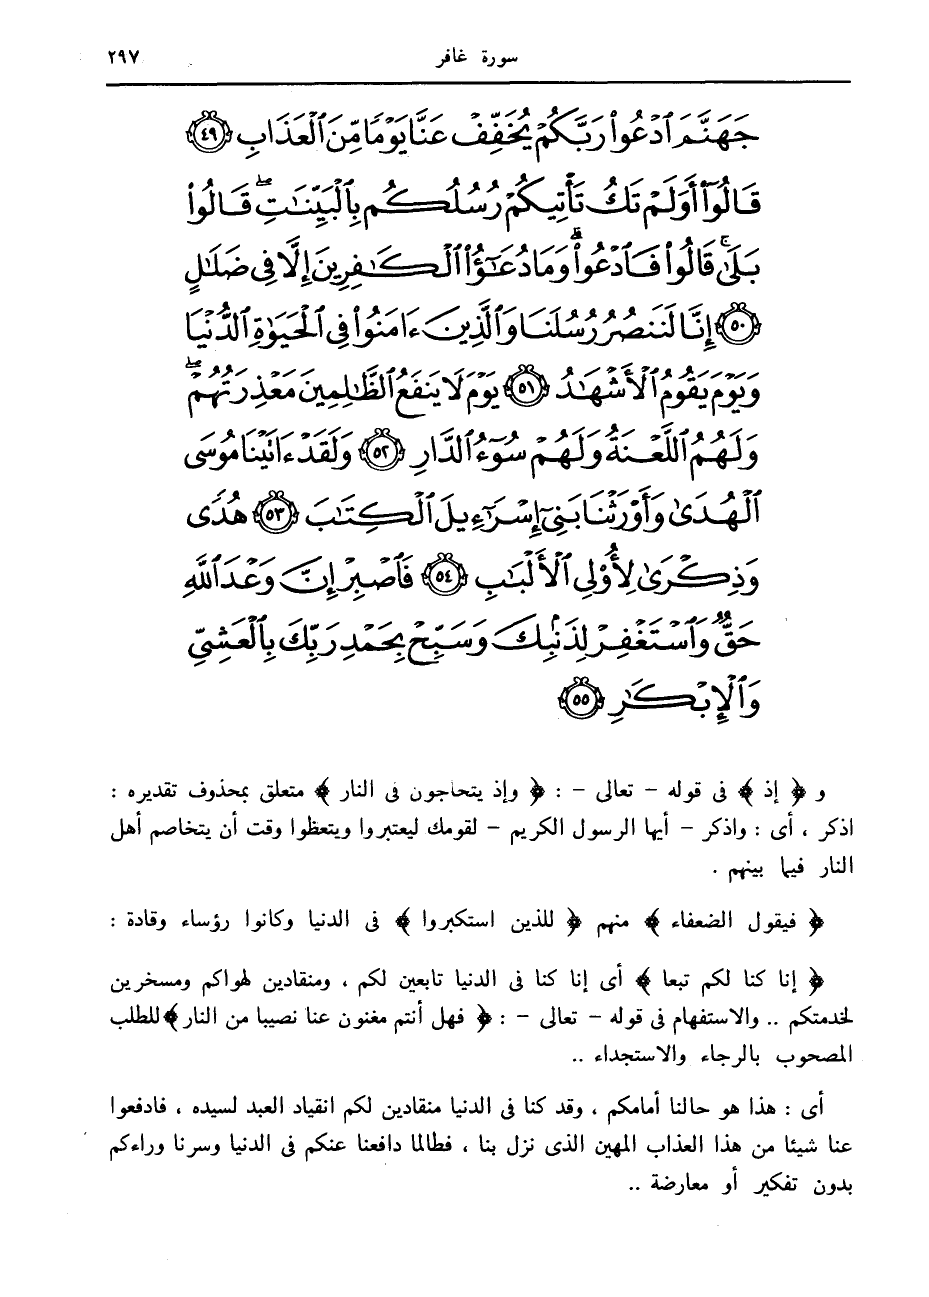 سورة غافر
٢٩٧
جَهَنَّمَ ٱدْعُوا۟ رَبَّكُمْ يُخَفِّفْ عَنَّا يَوْمًا مِّنَ ٱلْعَذَابِ ﴿٤٩﴾
قَالُوٓا۟ أَوَلَمْ تَكُ تَأْتِيكُمْ رُسُلُكُم بِٱلْبَيِّنَٰتِ ۖ قَالُوا۟
بَلَىٰ ۚ قَالُوا۟ فَٱدْعُوا۟ ۗ وَمَا دُعَٰٓؤُا۟ ٱلْكَٰفِرِينَ إِلَّا فِى ضَلَٰلٍ
﴿٥٠﴾ إِنَّا لَنَنصُرُ رُسُلَنَا وَٱلَّذِينَ ءَامَنُوا۟ فِى ٱلْحَيَوٰةِ ٱلدُّنْيَا
وَيَوْمَ يَقُومُ ٱلْأَشْهَٰدُ ﴿٥١﴾ يَوْمَ لَا يَنفَعُ ٱلظَّٰلِمِينَ مَعْذِرَتُهُمْ ۖ
وَلَهُمُ ٱللَّعْنَةُ وَلَهُمْ سُوٓءُ ٱلدَّارِ ﴿٥٢﴾ وَلَقَدْ ءَاتَيْنَا مُوسَى
ٱلْهُدَىٰ وَأَوْرَثْنَا بَنِىٓ إِسْرَٰٓءِيلَ ٱلْكِتَٰبَ ﴿٥٣﴾ هُدًى
وَذِكْرَىٰ لِأُو۟لِى ٱلْأَلْبَٰبِ ﴿٥٤﴾ فَٱصْبِرْ إِنَّ وَعْدَ ٱللَّهِ
حَقٌّ وَٱسْتَغْفِرْ لِذَنۢبِكَ وَسَبِّحْ بِحَمْدِ رَبِّكَ بِٱلْعَشِىِّ
وَٱلْإِبْكَٰرِ ﴿٥٥﴾
و ﴿ إذ ﴾ فى قوله – تعالى – : ﴿ وإذ يتحاجون فى النار ﴾ متعلق بمحذوف تقديره :
اذكر ، أى : واذكر – أيها الرسول الكريم – لقومك ليعتبروا ويتعظوا وقت أن يتخاصم أهل
النار فيما بينهم .
﴿ فيقول الضعفاء ﴾ منهم ﴿ للذين استكبروا ﴾ فى الدنيا وكانوا رؤساء وقادة :
﴿ إنا كنا لكم تبعا ﴾ أى إنا كنا فى الدنيا تابعين لكم ، ومنقادين لهواكم ومسخرين
لخدمتكم .. والاستفهام فى قوله – تعالى – : ﴿ فهل أنتم مغنون عنا نصيبا من النار ﴾ للطلب
المصحوب بالرجاء والاستجداء ..
أى : هذا هو حالنا أمامكم ، وقد كنا فى الدنيا منقادين لكم انقياد العبد لسيده ، فادفعوا
عنا شيئا من هذا العذاب المهين الذى نزل بنا ، فطالما دافعنا عنكم فى الدنيا وسرنا وراءكم
بدون تفكير أو معارضة ..